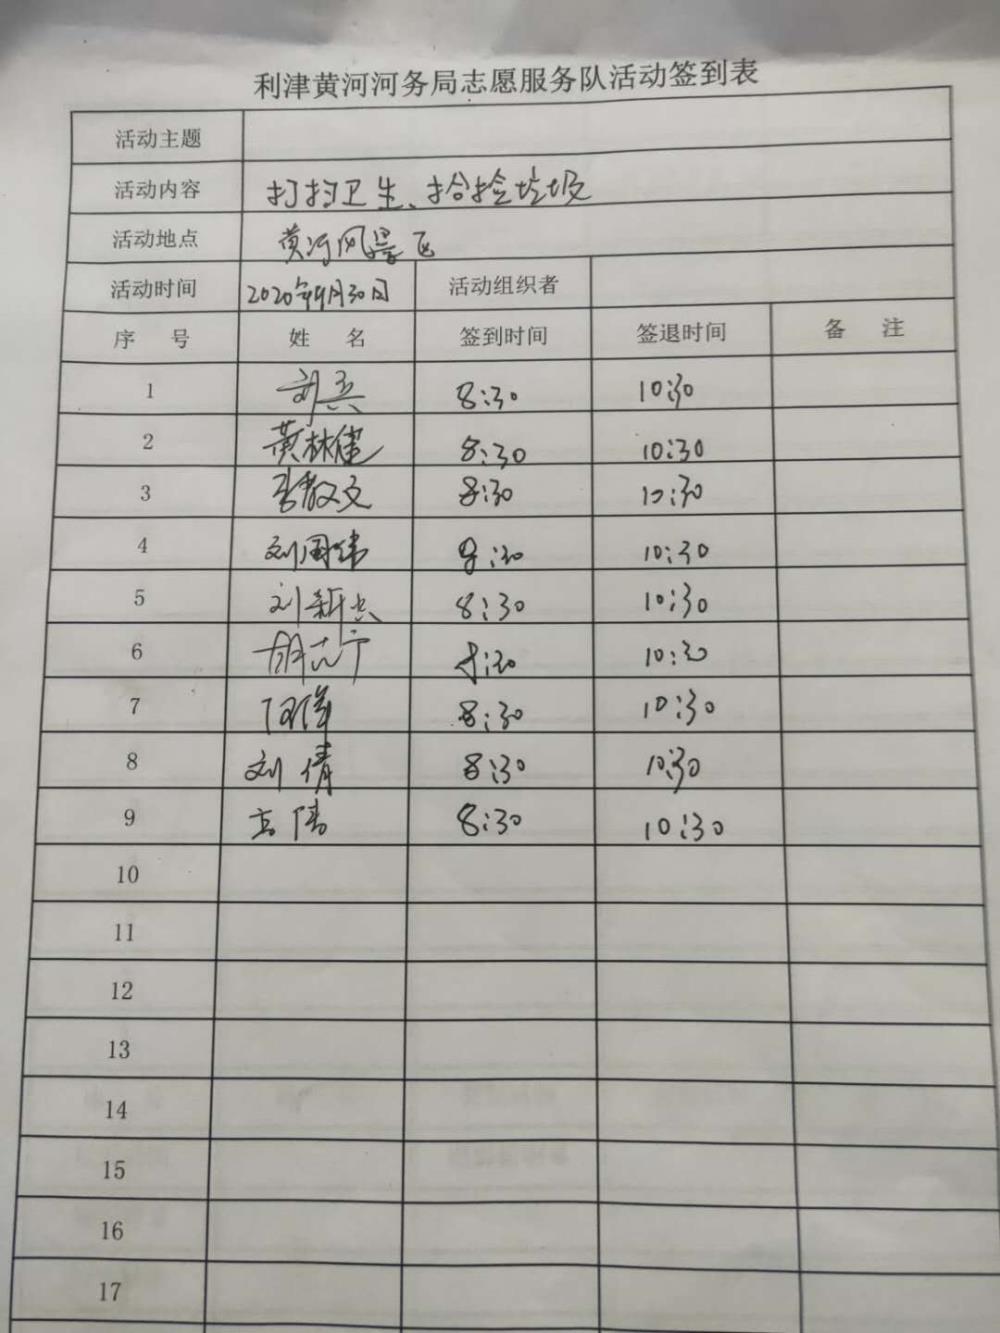 利津黄河河务局志愿服务队活动签到表
活动主题
活动内容 打扫卫生、拾捡垃圾
活动地点 黄河风景区
活动时间 2020年9月30日 活动组织者
序 号 姓 名 签到时间 签退时间 备 注
1 刘兵 8:30 10:30
2 黄林健 8:30 10:30
3 8:30 10:30
4 刘国伟 8:30 10:30
5 刘新兵 8:30 10:30
6 胡志宁 8:30 10:30
7 8:30 10:30
8 刘倩 8:30 10:30
9 8:30 10:30
10
11
12
13
14
15
16
17